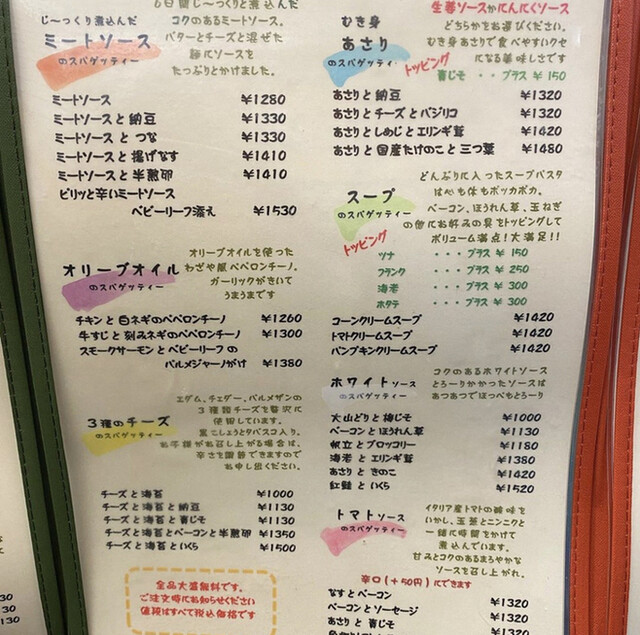 6日間じ〜っくり煮込んだ
じ〜っくり煮込んだ
コクのあるミートソース。
バターとチーズと混ぜた
麺にソースを
たっぷりとかけました。
ミートソース
のスパゲッティー
ミートソース ¥1280
ミートソースと納豆 ¥1330
ミートソースとつな ¥1330
ミートソースと揚げなす ¥1410
ミートソースと半熟卵 ¥1410
ピリッと辛いミートソース
ベビーリーフ添え ¥1530
オリーブオイル
のスパゲッティー
オリーブオイルを使った
わざや風ペペロンチーノ。
ガーリックがきいて
うまうまです
チキンと白ネギのペペロンチーノ ¥1260
牛すじと刻みネギのペペロンチーノ ¥1300
スモークサーモンとベビーリーフの
パルメジャーノがけ ¥1380
3種のチーズ
のスパゲッティー
エダム、チェダー、パルメザンの
3種類チーズを贅沢に
使用しています。
黒こしょうとタバスコ入り。
お子様がお召し上がる場合は、
辛さを調節できますので
お申し出ください。
チーズと海苔 ¥1000
チーズと海苔と納豆 ¥1130
チーズと海苔と青じそ ¥1130
チーズと海苔とベーコンと半熟卵 ¥1350
チーズと海苔といくら ¥1500
全品大盛無料です。
ご注文時にお知らせください
値段はすべて税込価格です
むき身
あさり
のスパゲッティ
生姜ソースかにんにくソース
どちらかをお選びください。
むき身あさりで食べやすいクセ
になる美味しさです
トッピング
青じそ ・・プラス ¥150
あさりと納豆 ¥1320
あさりとチーズとバジリコ ¥1320
あさりとしめじとエリンギ茸 ¥1420
あさりと国産たけのこと三つ葉 ¥1480
スープ
のスパゲッティー
どんぶりに入ったスープパスタ
は心も体もポッカポカ。
ベーコン、ほうれん草、玉ねぎ
の他にお好みの具をトッピングして
ボリューム満点!大満足!!
トッピング
ツナ ・・・プラス ¥150
フランク ・・・プラス ¥250
海老 ・・・プラス ¥300
ホタテ ・・・プラス ¥300
コーンクリームスープ ¥1420
トマトクリームスープ ¥1420
パンプキンクリームスープ ¥1420
ホワイトソース
のスパゲッティー
コクのあるホワイトソース
とろーりかかったソースは
あつあつでほっぺもとろーり
大山どりと梅じそ ¥1000
ベーコンとほうれん草 ¥1130
帆立とブロッコリー ¥1180
海老とエリンギ茸 ¥1380
あさりときのこ ¥1420
紅鮭といくら ¥1520
トマトソース
のスパゲッティー
イタリア産トマトの酸味を
いかし、玉葱とニンニクと
一緒に時間をかけて
煮込んでいます。
甘みとコクのあるまろやかな
ソースを召し上がれ。
辛口(+50円)にできます
なすとベーコン ¥1320
ベーコンとソーセージ ¥1320
あさりと青じそ ¥1320